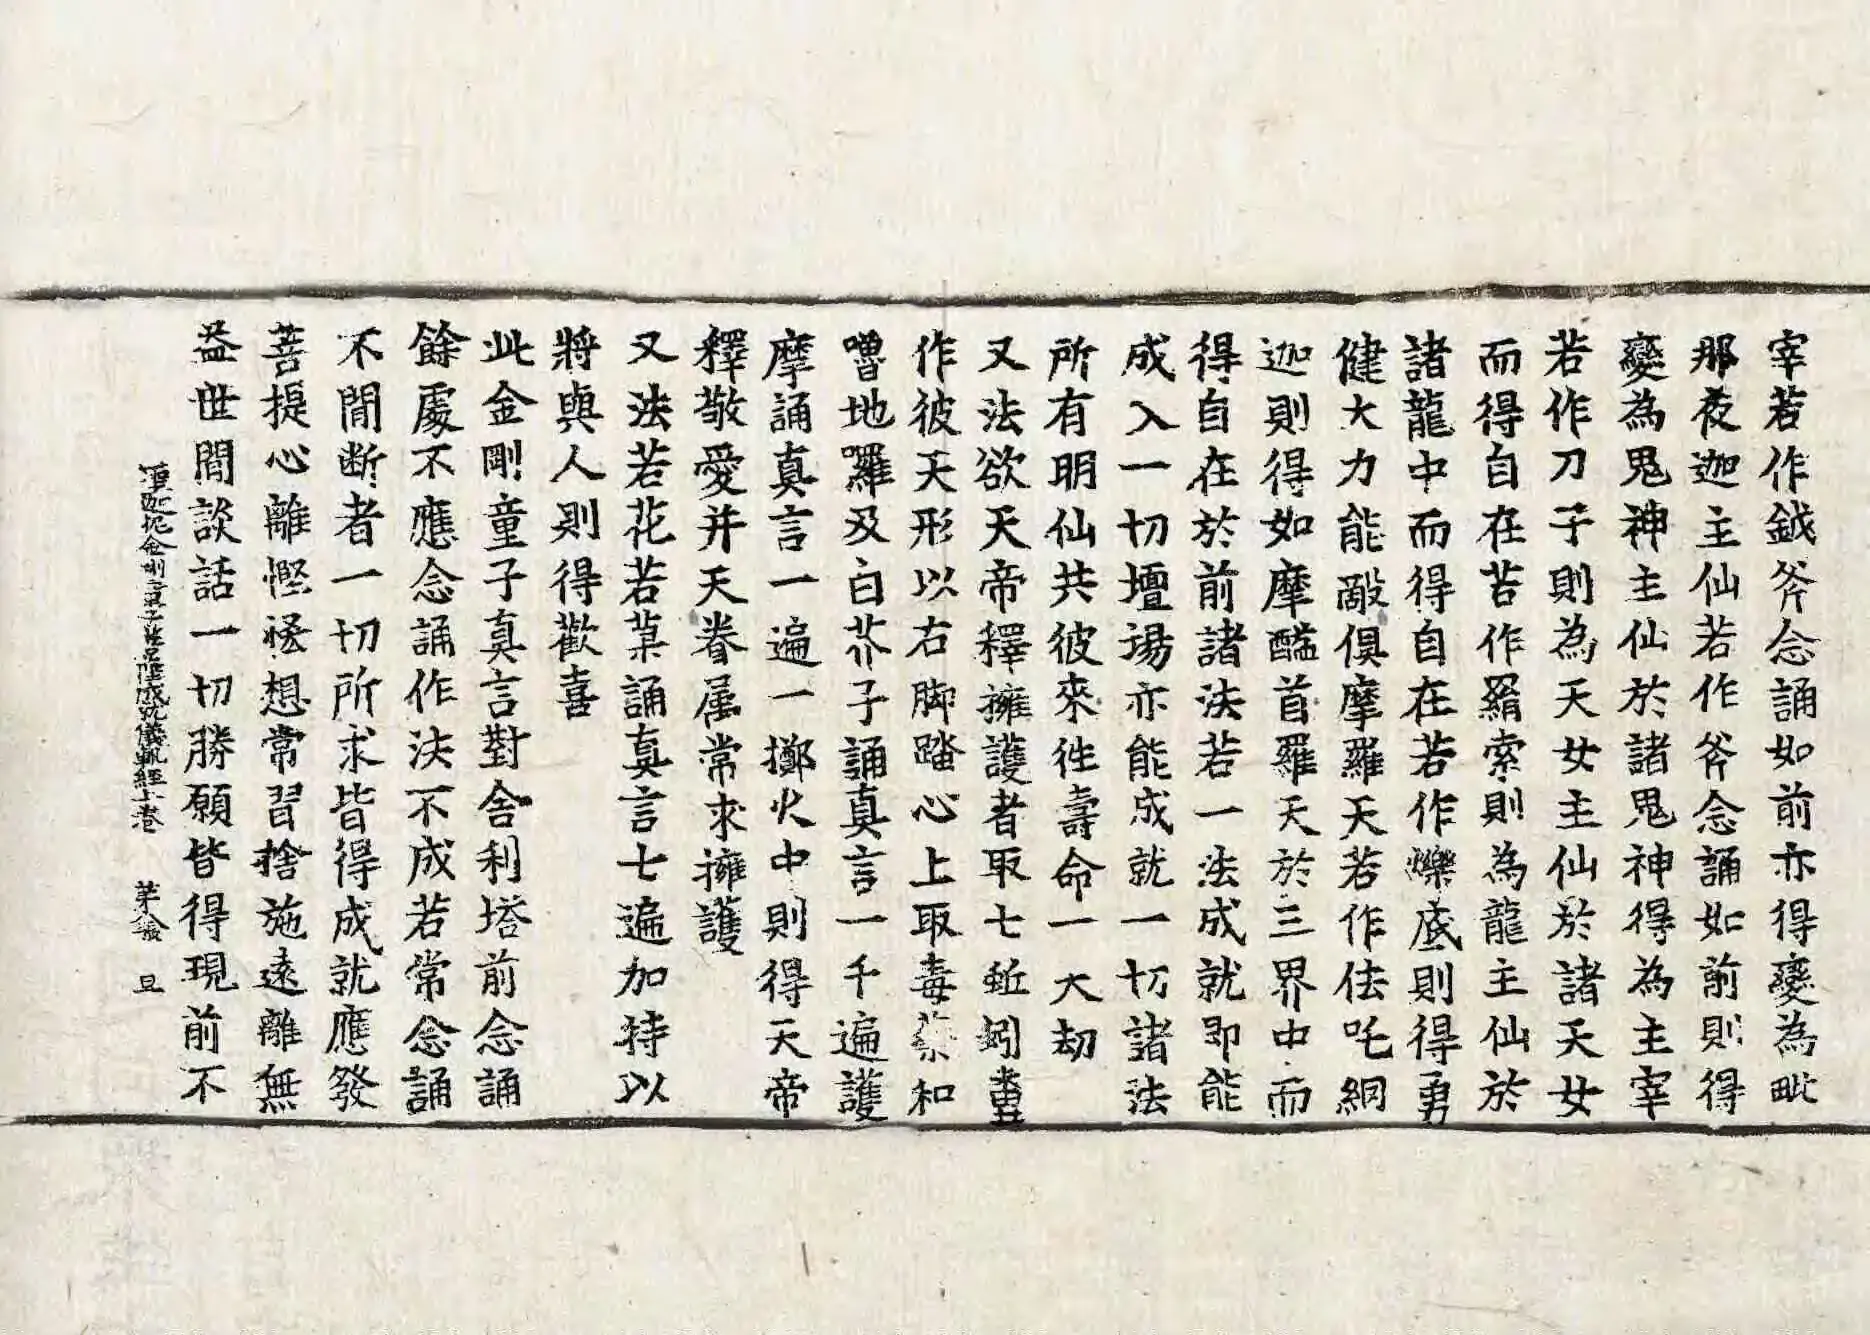 宰若作鉞斧念誦如前亦得變為毗
那夜迦主仙若作斧念誦如前則得
變為鬼神主仙於諸鬼神得為主宰
若作刀子則為天女主仙於諸天女
而得自在若作羂索則為龍主仙於
諸龍中而得自在若作爍底則得勇
健大力能敵俱摩羅天若作佉吒網
迦則得如摩醯首羅天於三界中而
得自在於前諸法若一法成就即能
成入一切壇場亦能成就一切諸法
所有明仙共彼來往壽命一大劫
又法欲天帝釋擁護者取七蚯蚓糞
作彼天形以右脚踏心上取毒藥和
嚕地囉及白芥子誦真言一千遍護
摩誦真言一遍一擲火中則得天帝
釋敬愛并天眷属常求擁護
又法若花若菓誦真言七遍加持以
將與人則得歡喜
此金剛童子真言對舍利塔前念誦
餘處不應念誦作法不成若常念誦
不間断者一切所求皆得成就應發
菩提心離慳悋想常習捨施遠離無
益世間談話一切勝願皆得現前不
金剛童子 儀軌經上卷 旦